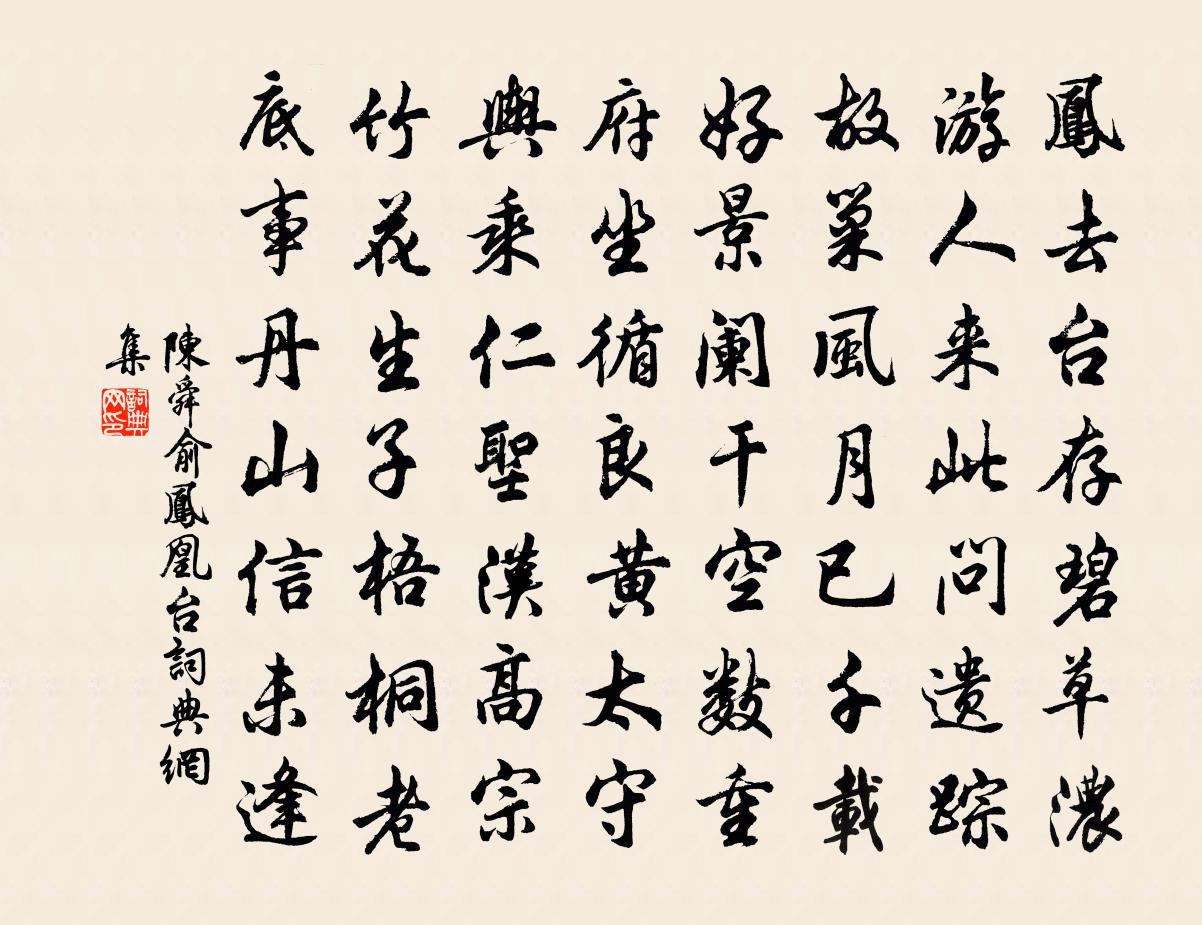 鳳去台存碧草濃
游人来此問遗踪
故巢風月已千載
好景阑干空数重
府坐循良黄太守
輿乘仁聖漢高宗
竹花生子梧桐老
底事丹山信未逢
陳舜俞鳳凰台詞典網
集
詞典网印